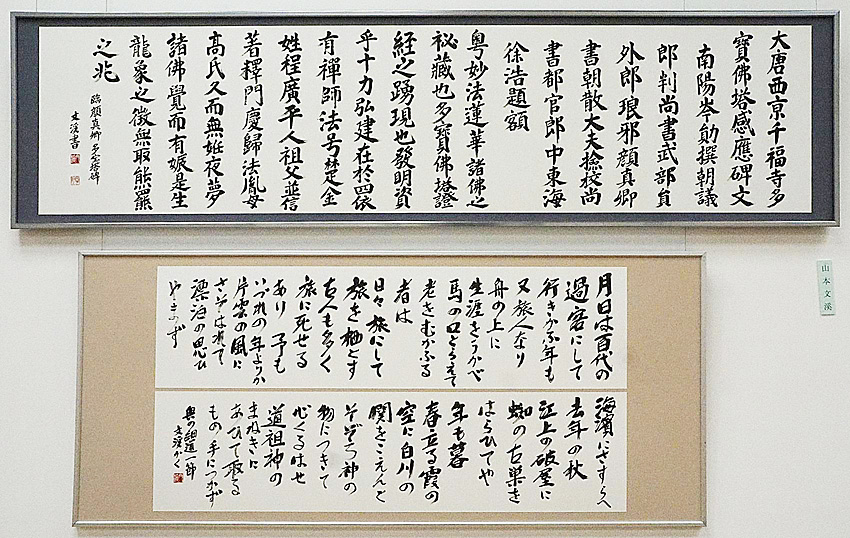 大唐西京千福寺多
寶佛塔感應碑文
南陽岑勛撰朝議
郎判尚書武部員
外郎琅邪顏真卿
書朝散大夫撿挍尚
書都官郎中東海
徐浩題額
粵妙法蓮華諸佛之
祕藏也多寶佛塔證
経之踴現也發明資
乎十力弘建在於四依
有禪師法号楚金
姓程廣平人祖父並信
著釋門慶歸法胤母
高氏久而無姙夜夢
諸佛覺而有娠是生
龍象之徴無取熊羆
之兆
臨顔真卿多宝塔碑
文渓書
月日は百代の
過客にして
行きかふ年も
又旅人なり
舟の上に
生涯をうかべ
馬の口とらえて
老をむかふる
者は
日々旅にして
旅を栖とす
古人も多く
旅に死せる
あり 予も
いづれの年よりか
片雲の風に
さそはれて
漂泊の思ひ
やまず
海濱にさすらへ
去年の秋
江上の破屋に
蜘の古巣を
はらひてや
年も暮
春立る霞の
空に白川の
関をこえんと
そぞろ神の
物につきて
心くるはせ
道祖神の
まねきに
あひて取る
もの手につかず
奥の細道一節
文渓かく
山本文溪